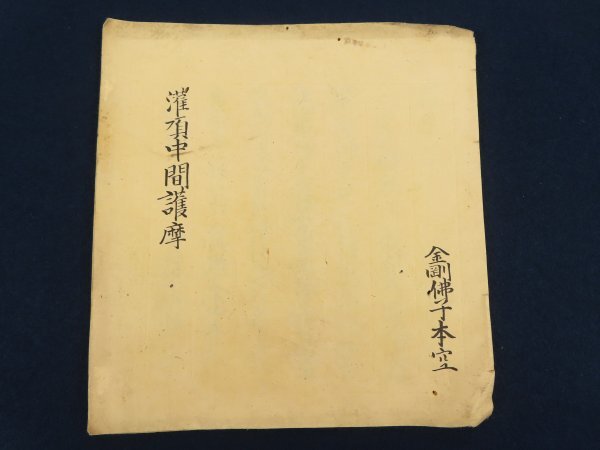 灌頂中間護摩
金剛佛子本空